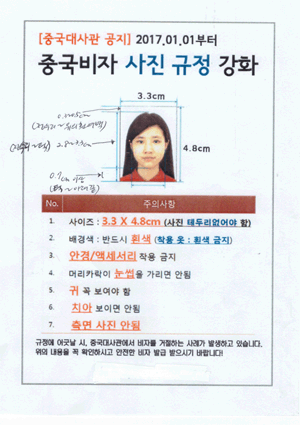 [중국대사관 공지] 2017.01.01부터
중국비자 사진 규정 강화
3.3cm
4.8cm
No. 주의사항
1. 사이즈 : 3.3 X 4.8cm (사진 테두리없어야 함)
2. 배경색 : 반드시 흰색 (착용 옷 : 흰색 금지)
3. 안경/액세서리 착용 금지
4. 머리카락이 눈썹을 가리면 안됨
5. 귀 꼭 보여야 함
6. 치아 보이면 안됨
7. 측면 사진 안됨
규정에 어긋날 시, 중국대사관에서 비자를 거절하는 사례가 발생하고 있습니다.
위의 내용을 꼭 확인하시고 안전한 비자 발급 받으시기 바랍니다!